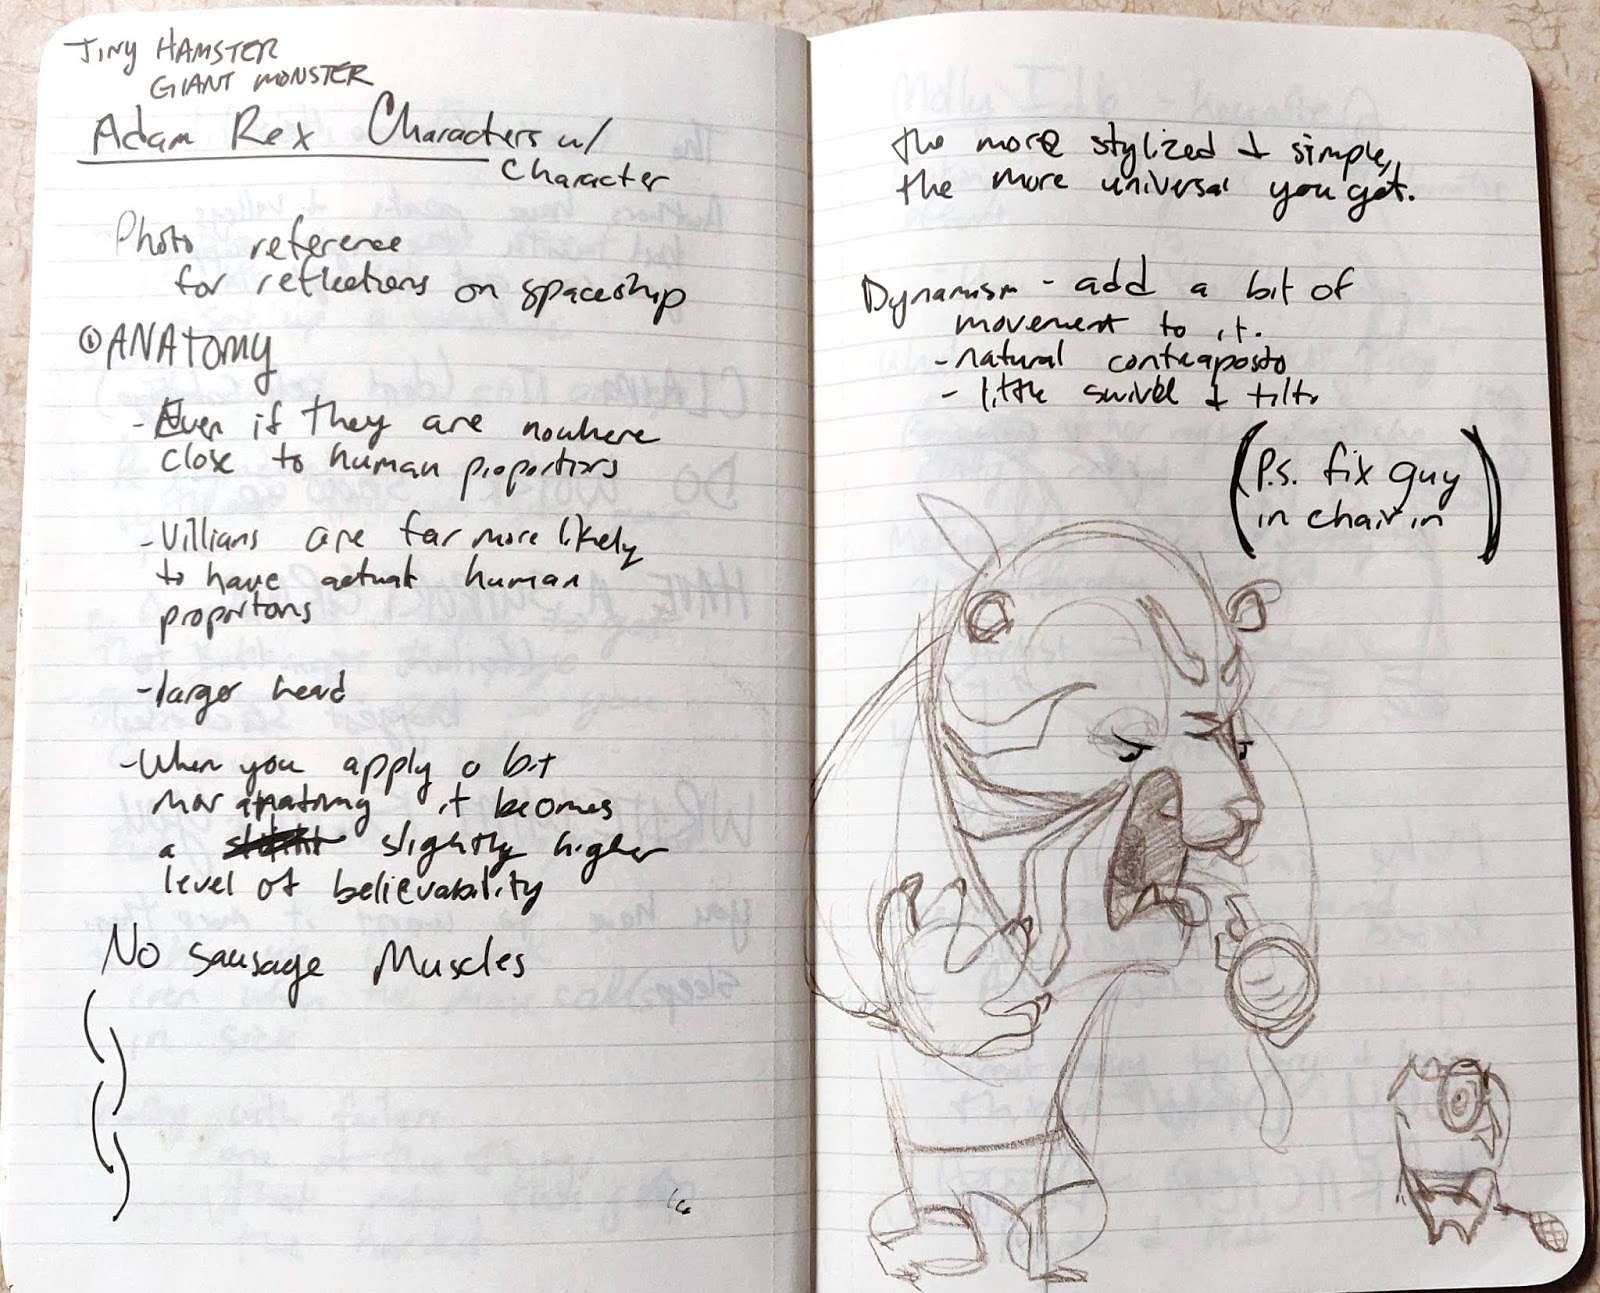 Tiny HAMSTER
GIANT MONSTER
Adam Rex Characters w/
Character
Photo reference
for reflections on spaceship
① ANATOMY
- Even if they are nowhere
close to human proportions
- Villians are far more likely
to have actual human
proportons
- larger head
- When you apply a bit
mor anatomy it becomes
a slightly higher
level of believability
No Sausage Muscles
the more stylized + simple,
the more universal you get.
Dynamism - add a bit of
movement to it.
- natural contraposto
- little swivel + tilts
(P.s. fix guy
in chair in)